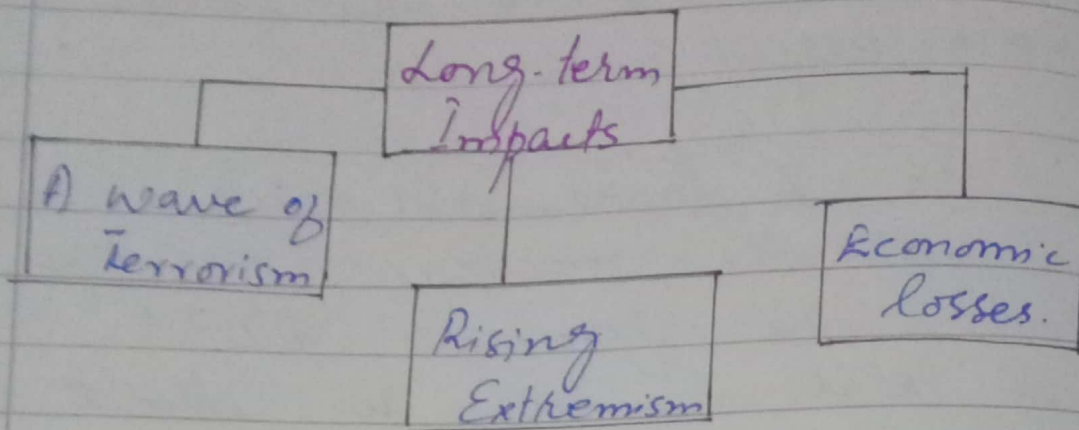 Long-term
Impacts
A wave of
Terrorism
Rising
Extremism
Economic
losses.